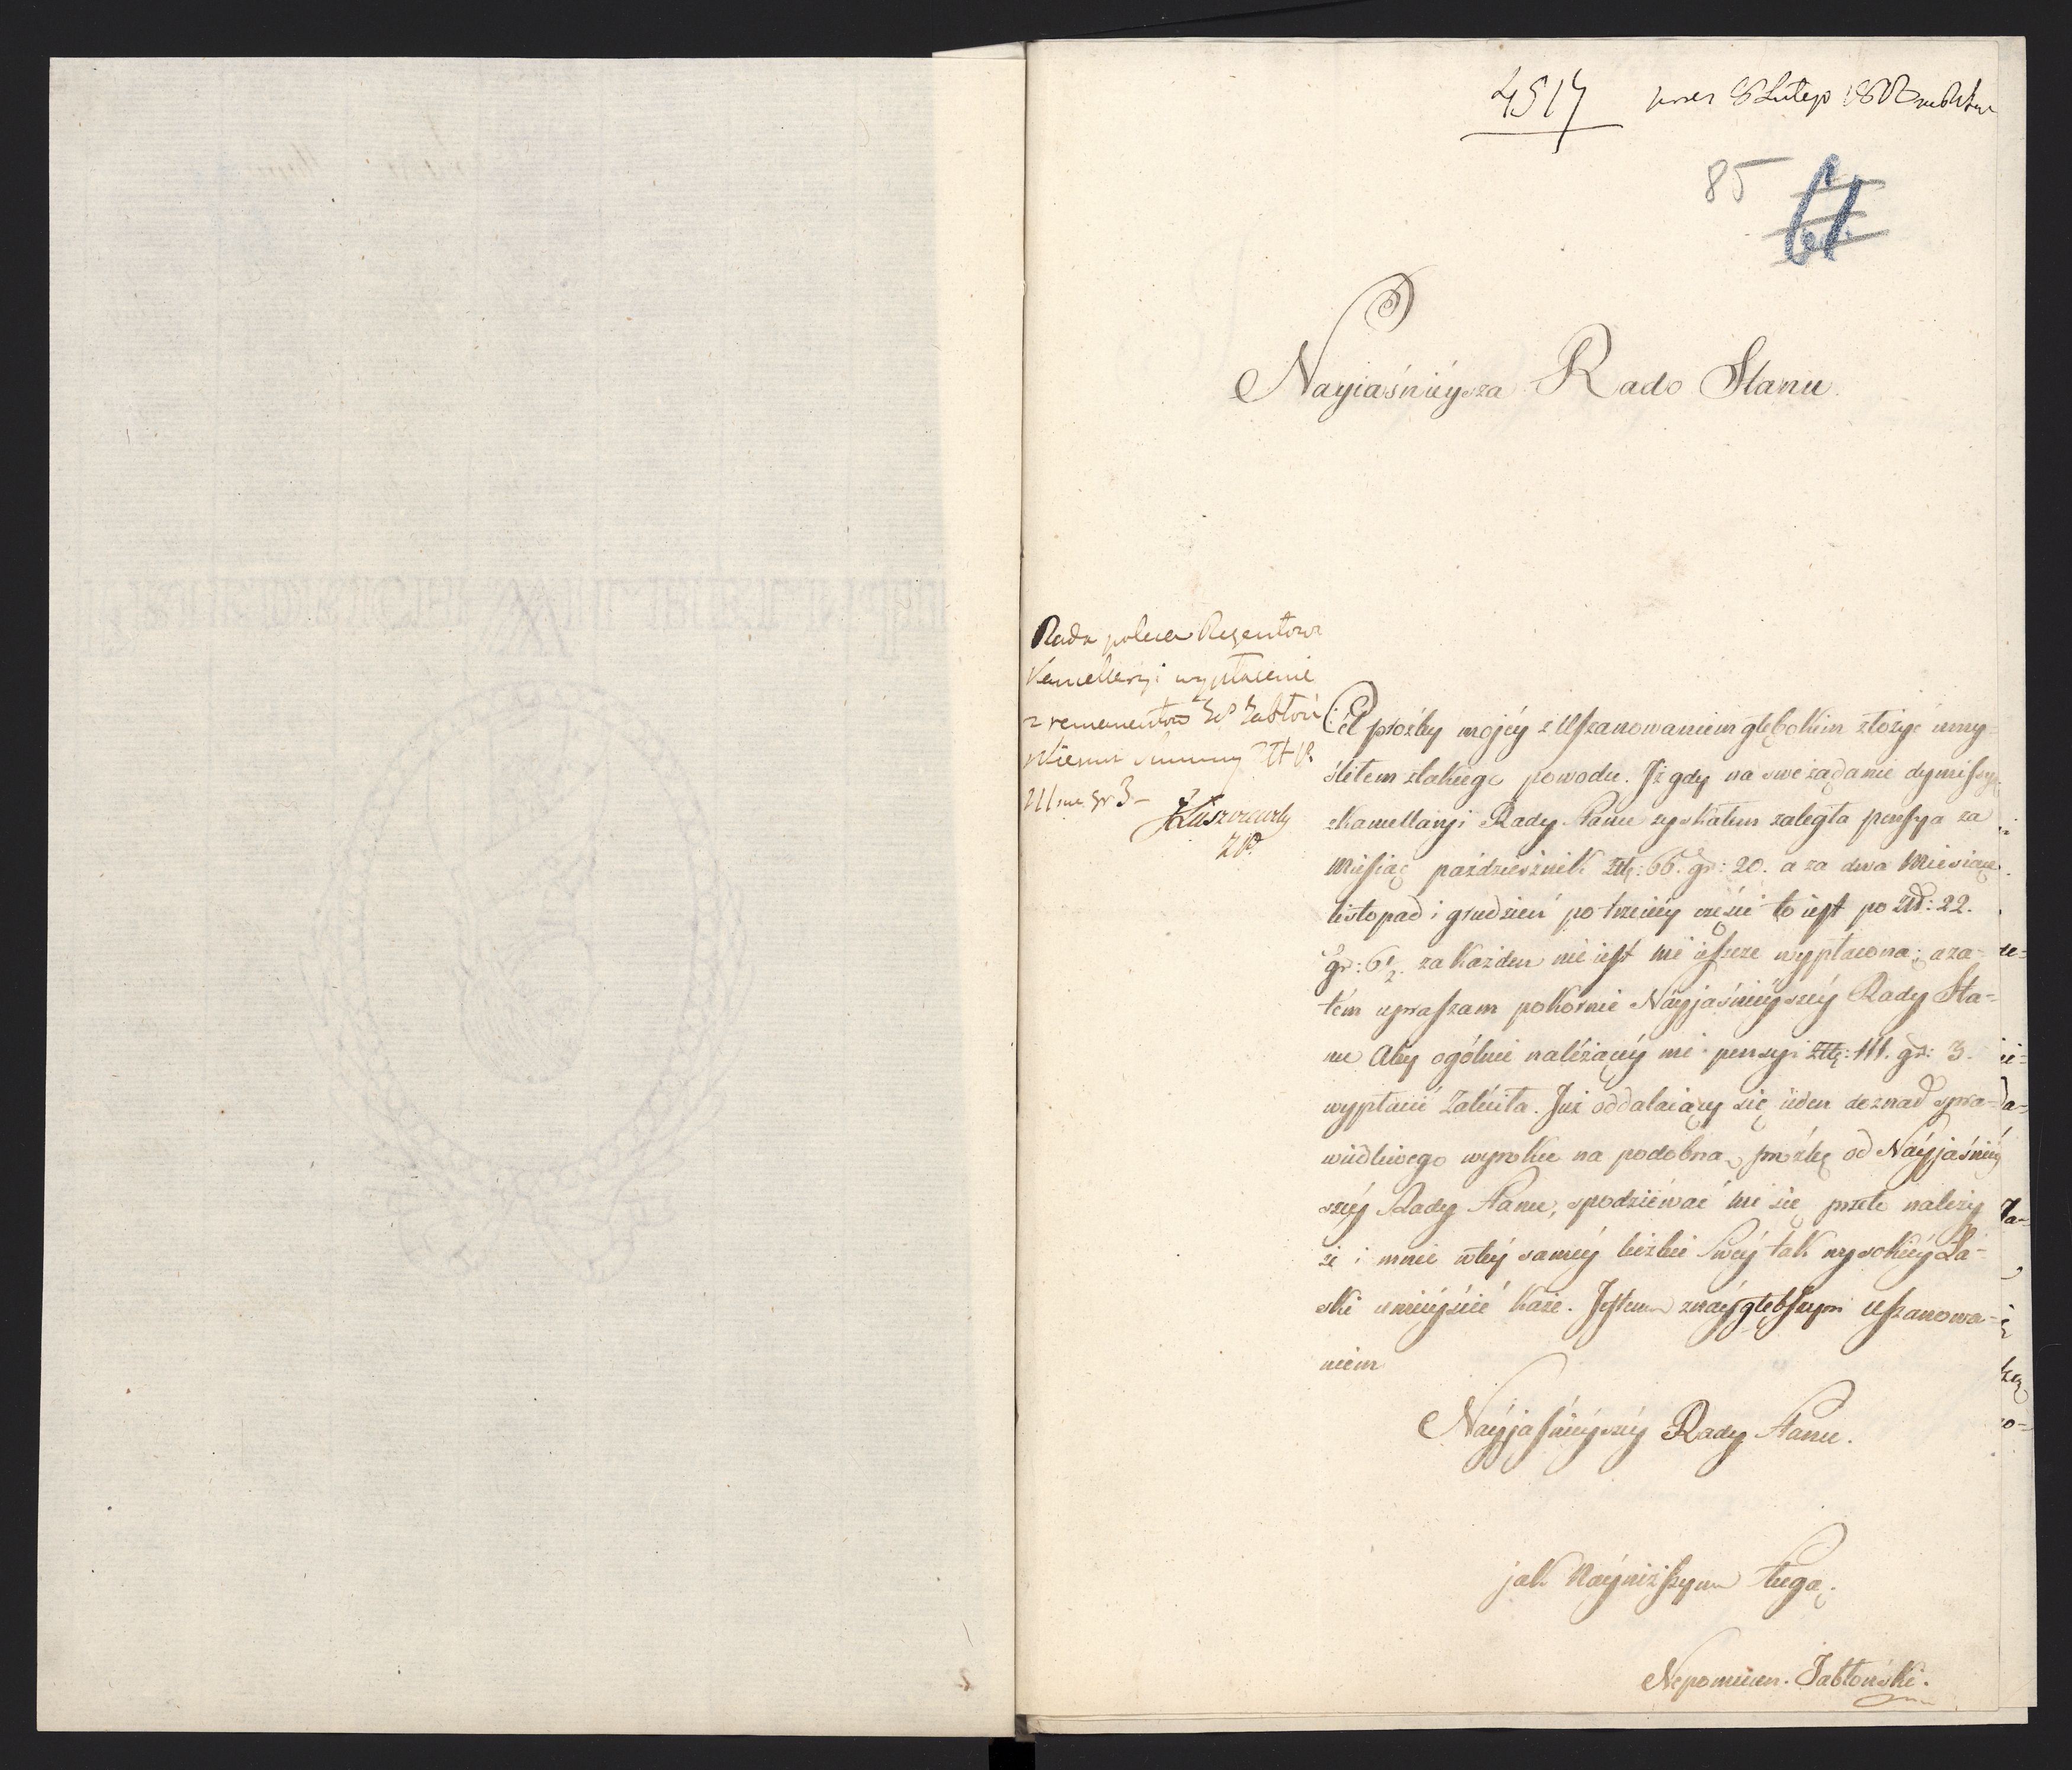 4517 8 Lutego 1808
85
61
Nayiaśnieysza Rado Stanu.
Rada poleca Regentowi
Kancellaryi wypłacenie
z remanentów Jabłoń
skiemu summy
111 gr 3 –
Cel proźby mojéy z Uszanowaniem głębokim złożyć umy-
śliłem z takiego powodu. Iż gdy na swe ząđanie dymissyą
z Kancellaryi Rady Stanu zyskałem zaległa pensya za
Miesiąc październik Złł: 66. gr: 20. a za dwa Miesiące
listopad i grudzień po trzeciéy części to iest po Złł: 22.
gr: 6½. za każden nie iest mi ieszcze wypłacona; a za-
tém upraszam pokornie Nayjaśnieyszéy Rady Sta-
nu Aby ogólnie należącéy mi pensyi Złł: 111. gr: 3.
wypłacić Zaleciła. Już oddalaiący się ieden doznał spra-
wiedliwego wyroku na podobną proźbę od Nayjaśniéy
széy Rady Stanu, spodziéwać mi się przeto należy
że i mnie w téy saméy liczbie Swéy tak wysokiéy Ła-
ski umieyścić każe. Jestem z naygłębszym Uszanowa-
niem
Nayjaśnieyszéy Rady Stanu.
jak Nayniższym sługą.
Nepomucen. Jabłoński.